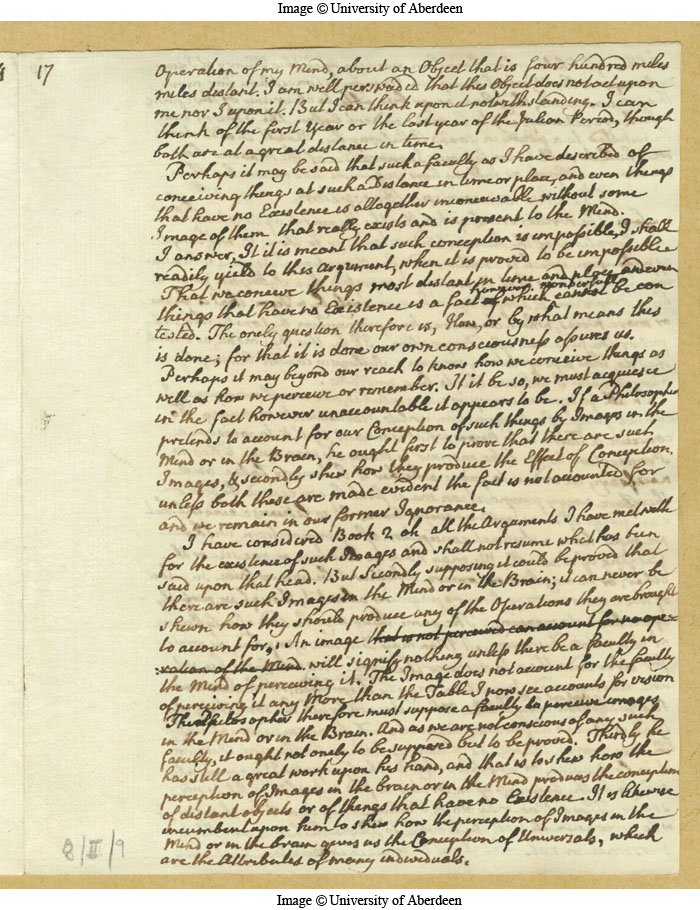 Image © University of Aberdeen
4
17
Operation of my Mind, about an Object that is four hundred miles
miles distant. I am well perswaded that this Object does not act upon
me nor I upon it. But I can think upon it notwithstanding. I can
think of the first Year or the last year of the Julian Period, though
both are at a great distance in time.
Perhaps it may be said that such a faculty as I have described of
conceiving things at such a Distance in time or place, and even things
that have no Existence is altogether inconceivable without some
Image of them that really exists and is present to the Mind.
I answer, If it is meant that such conception is impossible, I shall
readily yield to this argument, when it is proved to be impossible
That we conceive things most distant in time and place, and even
however wonderfull
things that have no Existence is a fact of which cannot be con
tested. The onely question therefore is, How, or by what means this
is done; for that it is done our own consciousness assures us.
Perhaps it may beyond our reach to know how we conceive things as
well as how we perceive or remember. If it be so, we must acquiesce
in the fact however unaccountable it appears to be. If a Philosopher
pretends to account for our Conception of such things by Images in the
Mind or in the Brain, he ought first to prove that there are such
Images, & secondly shew how they produce the Effect of Conception.
unless both these are made evident the fact is not accounted for
and we remain in our former Ignorance.
I have considered Book 2 ch all the Arguments I have met with
for the existence of such Images and shall not resume what has been
said upon that head. But Secondly supposing it could be proved that
there are such Images in the Mind or in the Brain; it can never be
shewn how they should produce any of the Operations they are brought
to account for. An image that is not perceived can account for no ope-
ration of the Mind. will signify nothing unless there be a faculty in
the Mind of perceiving it. The Image does not account for the faculty
of perceiving it any More than the Table I now see accounts for vision
The Philosopher therefore must suppose a faculty to perceive images
in the Mind or in the Brain. And as we are not conscious of any such
faculty, it ought not onely to be supposed but to be proved. Thirdly he
has still a great work upon his hand, and that is to shew how the
perception of Images in the brain or in the Mind produces the conception
of distant objects or of things that have no Existence. It is likewise
incumbent upon him to shew how the perception of Images in the
Mind or in the brain gives us the Conception of Universals, which
are the Attributes of many individuals.
8/II/9
Image © University of Aberdeen